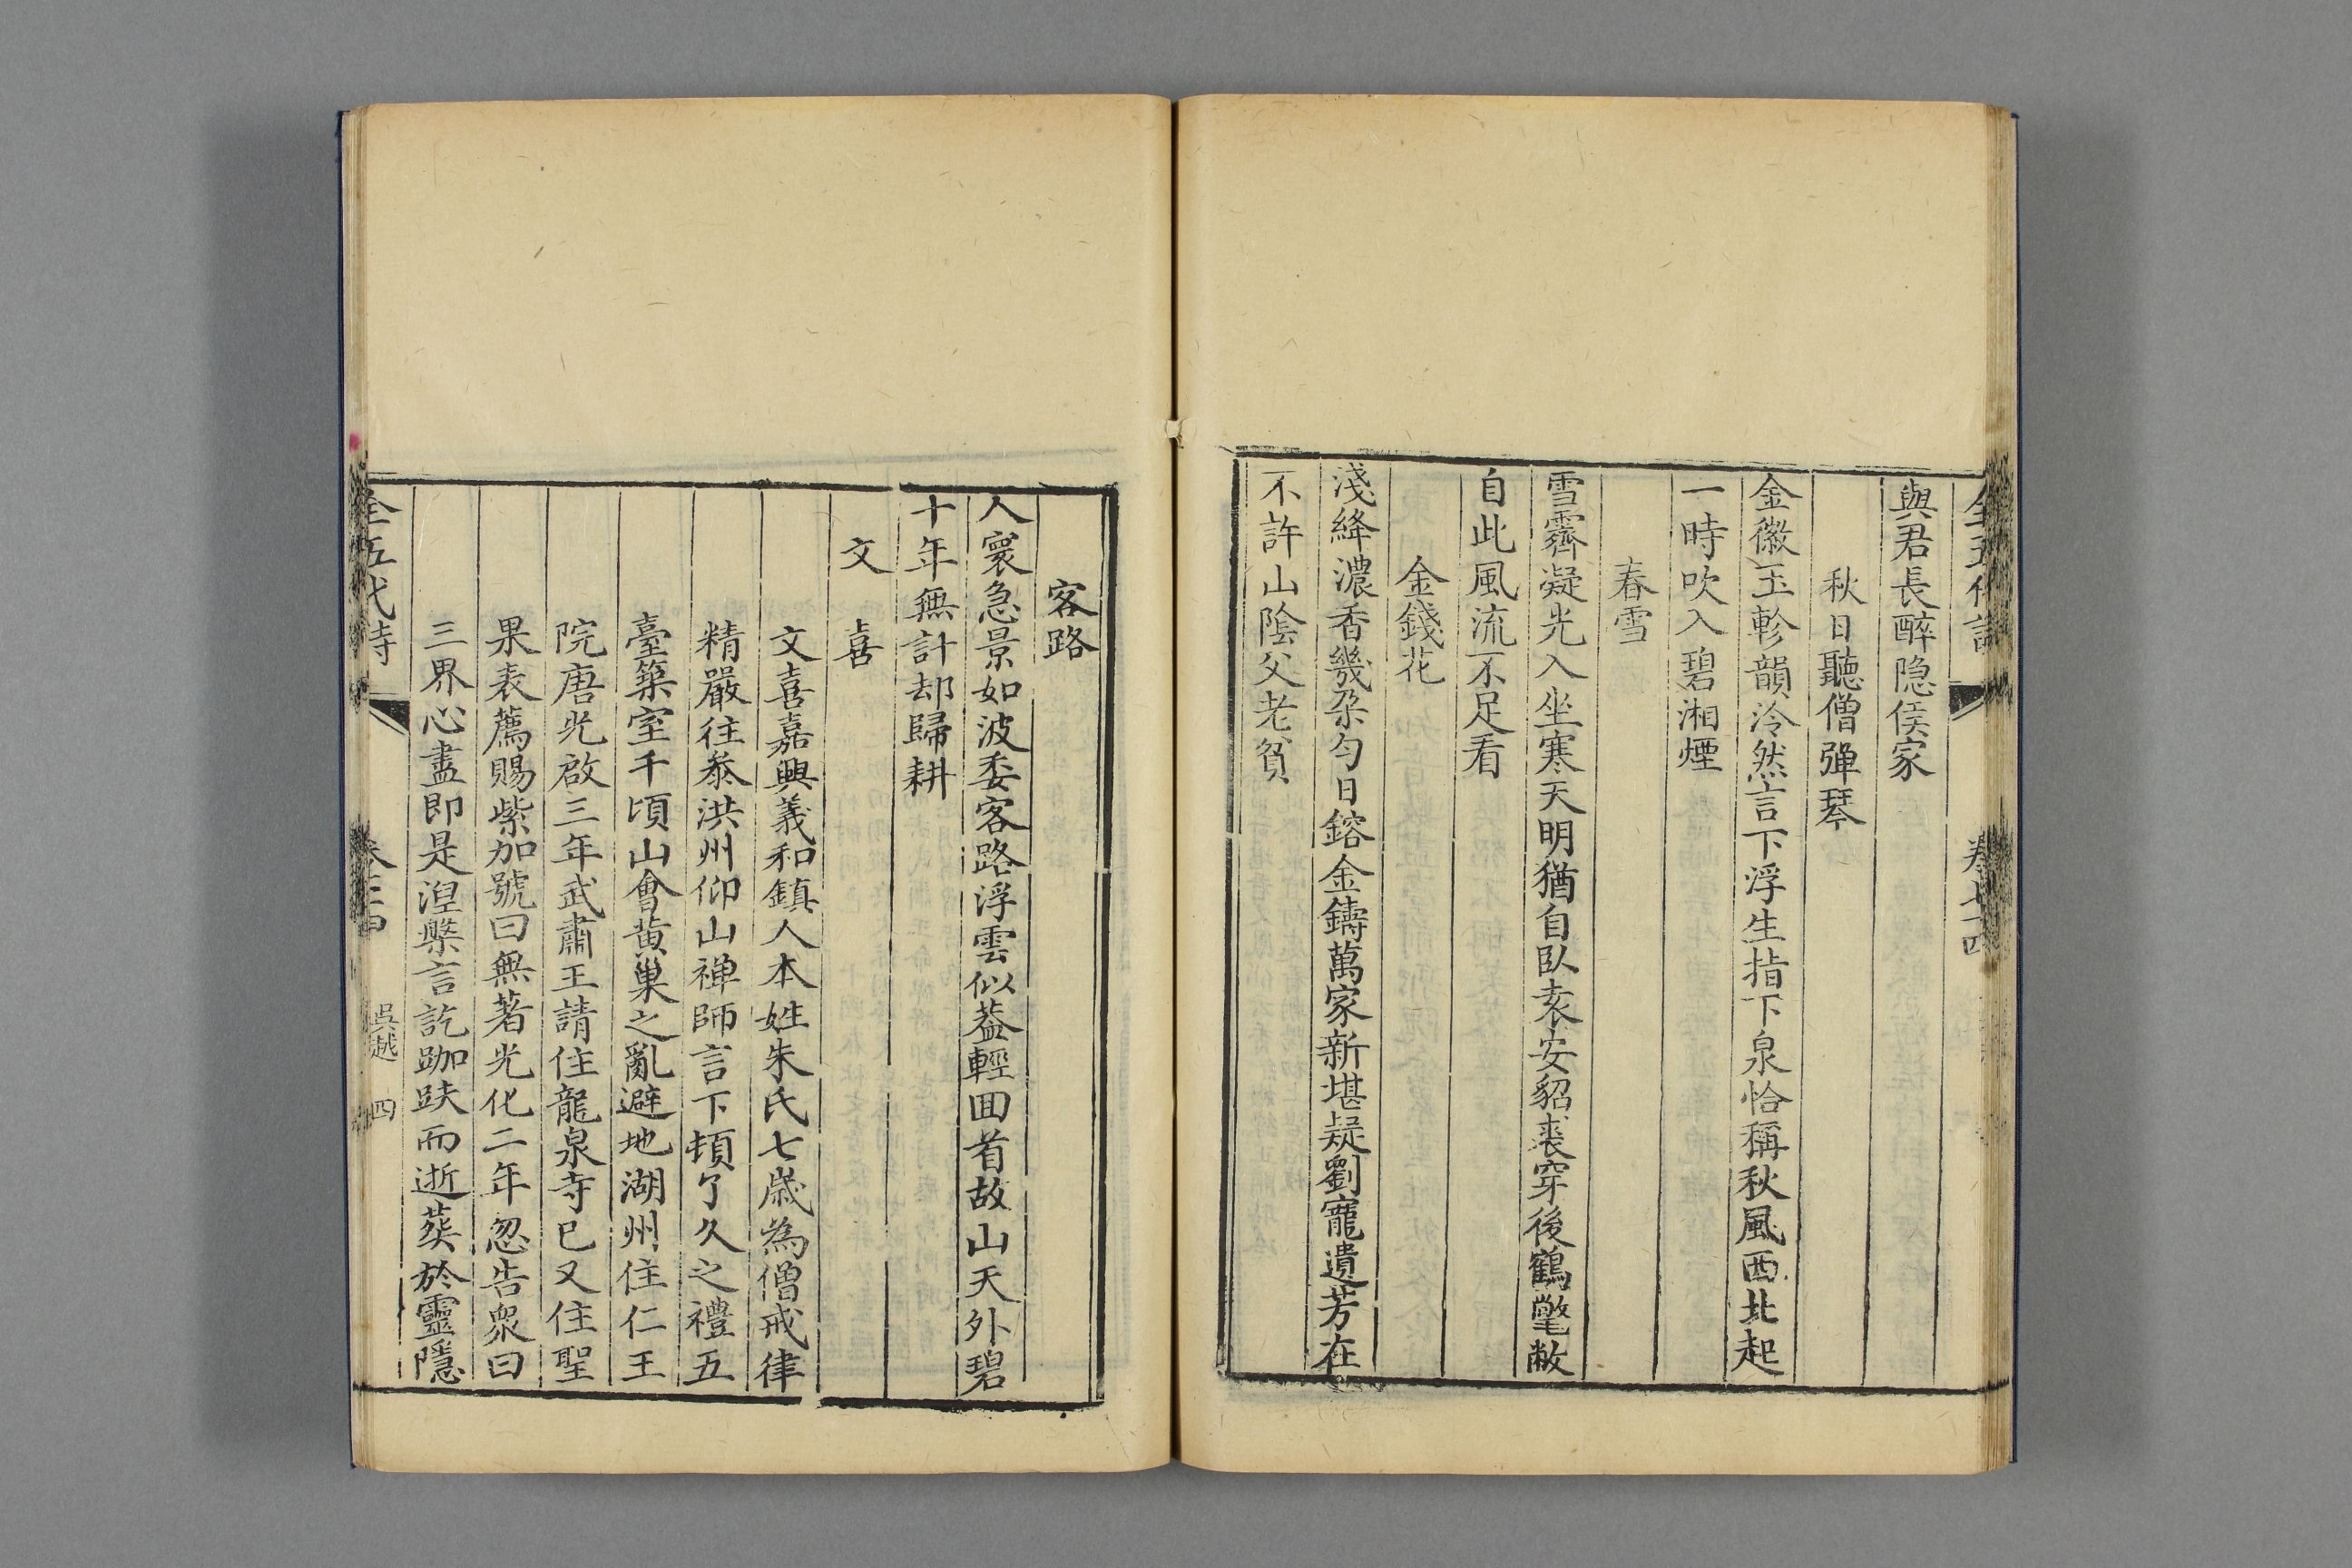 全五代詩
卷七十四
與君長醉隐侯家
秋日聽僧彈琴
金徽玉軫韻泠然言下浮生指下泉恰稱秋風西北起
一時吹入碧湘煙
春雪
雪霽凝光入坐寒天明猶自臥袁安貂裘穿後鶴氅敝
自此風流不足看
金錢花
淺絳濃香幾朶勻日鎔金鑄萬家新堪疑劉寵遺芳在
不許山陰父老貧
客路
人寰急景如波委客路浮雲似葢輕囬首故山天外碧
十年無計却歸耕
文喜
文喜嘉興義和鎮人本姓朱氏七歲為僧戒律
精嚴往叅洪州仰山禅師言下頓了久之禮五
臺築室千頃山會黄巢之亂避地湖州住仁王
院唐光啟三年武肅王請住龍泉寺已又住聖
果表薦賜紫加號曰無著光化二年忽告衆曰
三界心盡即是涅槃言訖跏趺而逝葬於靈隱
全五代詩
吳越 四